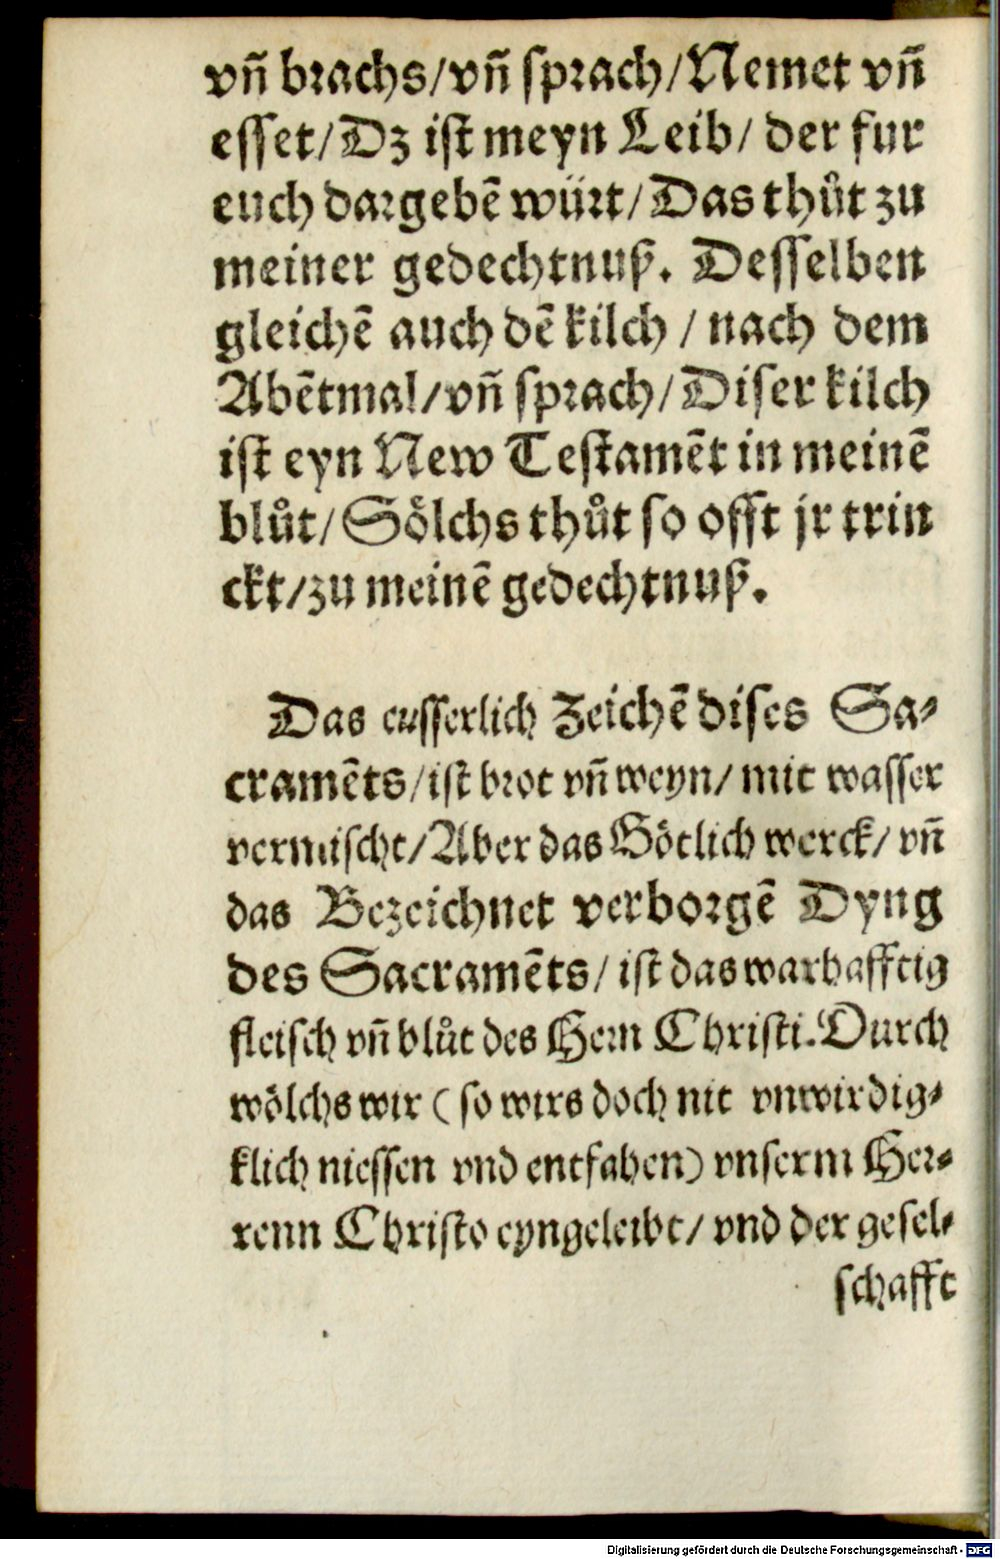 vñ brachs/vñ sprach/Nemet vñ
esset/Dz ist meyn Leib/ der fur
euch dargebē würt/Das thůt zu
meiner gedechtnuß. Desselben
gleichē auch dē kilch / nach dem
Abētmal/vñ sprach/Diser kilch
ist eyn New Testamēt in meinē
blůt/Sölchs thůt so offt jr trin
ckt/zu meinē gedechtnuß.
Das eusserlich Zeichē dises Sa⸗
cramēts/ist brot vñ weyn/ mit wasser
vermischt/Aber das Götlich werck/ vñ
das Bezeichnet verborgē Dyng
des Sacramēts/ ist das warhafftig
fleisch vñ blůt des Hern Christi. Durch
wölchs wir ( so wirs doch nit vnwirdig⸗
klich niessen vnd entfahen) vnserm Her⸗
renn Christo eyngeleibt/ vnd der gesel⸗
schafft
Digitalisierung gefördert durch die Deutsche Forschungsgemeinschaft - DFG